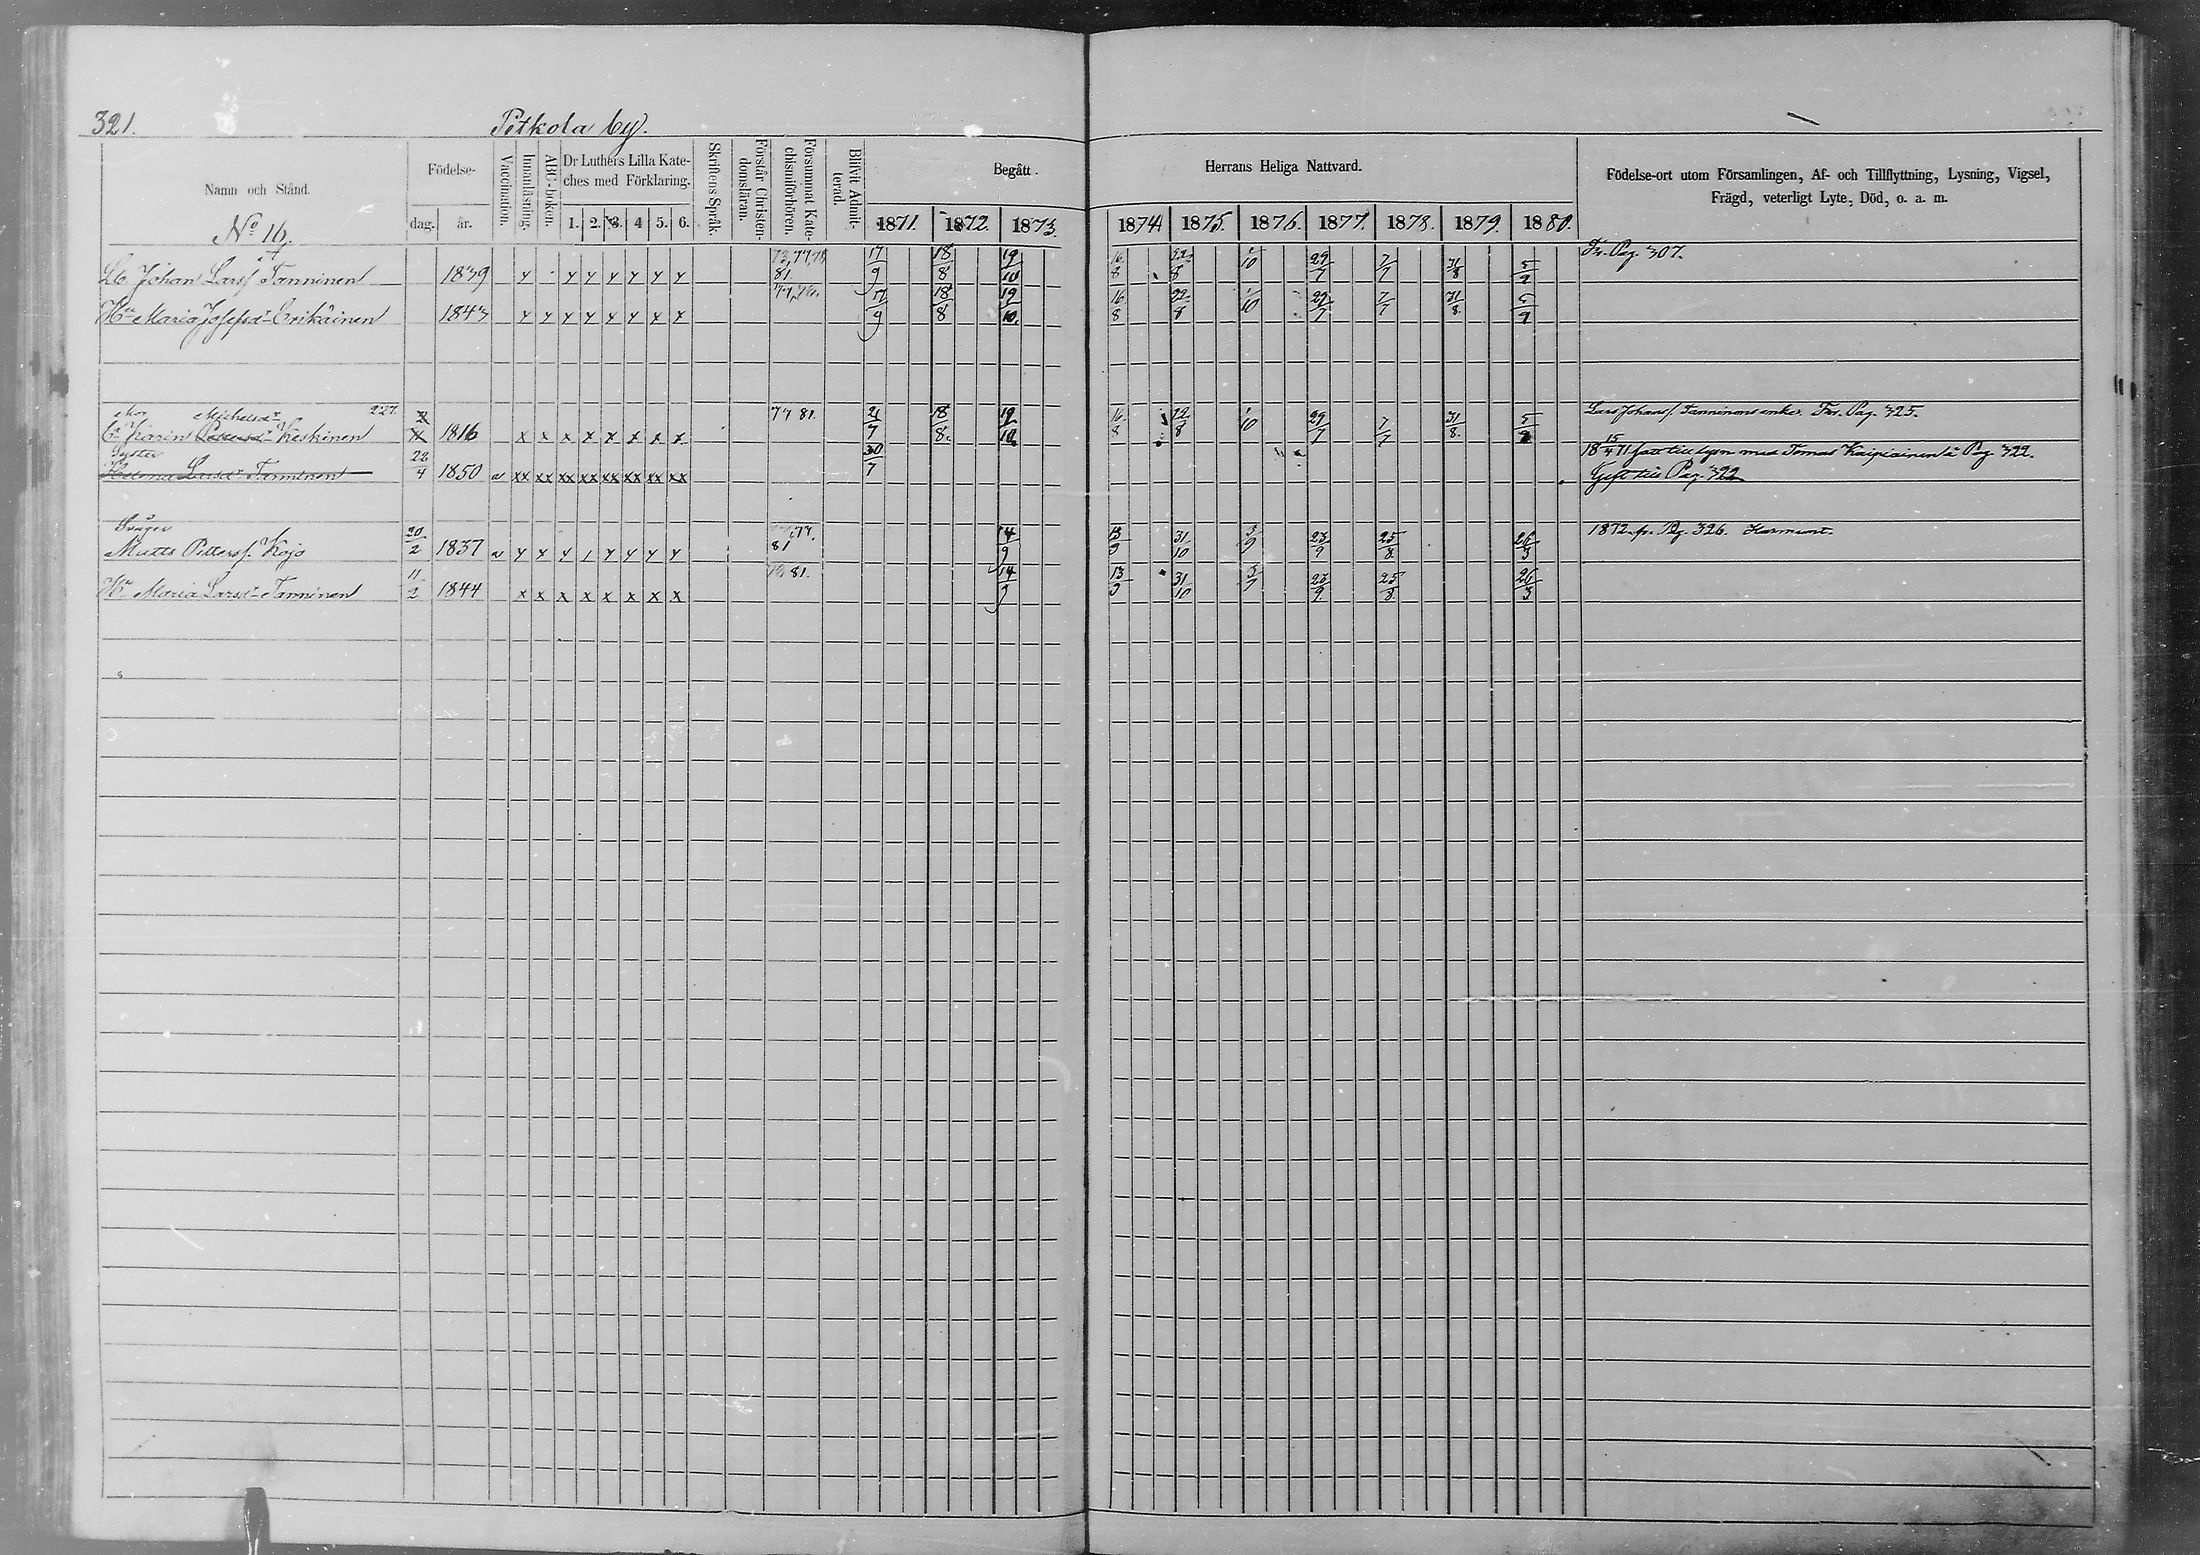 321.
Pitkola by.
Namn och Stånd.
Födelse-
dag.
år.
Vaccination.
Innanläsning.
ABC-boken.
Dr Luthers Lilla Kate-
ches med Förklaring.
1. 2. 3. 4 5. 6.
Skriftens Språk.
Förstår Christen-
domsläran.
Försummat Kate-
chismiförhören.
Blifvit Admit-
terad.
Begått
Herrans Heliga Nattvard.
1871. 1872. 1873. 1874 1875. 1876. 1877. 1878. 1879. 1880.
Födelse-ort utom Församlingen, Af- och Tillflyttning, Lysning, Vigsel,
Frägd, veterligt Lyte, Död, o. a. m.
No 16.
Johan Larsf Tanninen 1839 y y y y y y y 81. 17/9 18/8 19/10 16/8 22/8 1/10 29/7 7/7 31/8 5/9 Fr. Pag. 307.
Hu Maria Josefsdr Erikäinen 1843 y y y y y y y y 17/9 18/8 19/10. 16/8 22/8 1/10 29/7 7/7 31/8. 5/9
Mor Michelsdr 227.
Karin Pettersdr Keskinen 1816 x x x x x x x x 77 81. 2/7 18/8. 19/10 16/8 22/8 1/10 29/7 7/7 31/8. 5/9 Lars Johansf Tanninens enka. Fr. Pag. 325.
Syster
Helena Larsdr Tanninen 22/4 1850 v xx xx xx xx xx xx xx xx 30/7 18 15/4 71 fått till lysn med Tomas Kaipiainen å Pag 322.
Gift till Pag. 322
Svåger
Matts Pettersf. Kojo 20/2 1837 v y y y y y y y 77. 81 14/9 13/9 31/10 3/9 23/9 25/8. 26/3 1872 fr. Pag. 326.
Hu Maria Larsdr Tanninen 11/2 1844 x x x x x x x x 81. 14/9 13/9 31/10 3/9 23/9. 25/8. 26/3